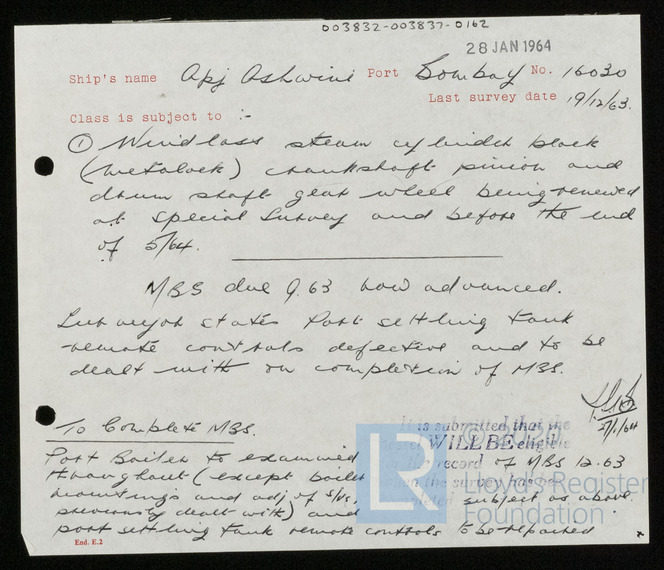 003832-003837-0162
28 JAN 1964
Ship's name Apj Ashwini Port Bombay No. 16030
Last survey date 19/12/63.
Class is subject to :-
① Windlass steam cylinder block
(metalock) crankshaft pinion and
drum shaft gear wheel being renewed
at Special Survey and before the end
of 5/64.
MBS due 9.63 now advanced.
Surveyor states Port settling tank
remote controls defective and to be
dealt with on completion of MBS.
27/1/64
To Complete MBS.
It is submitted that the
WILL BE eligible
Port Boiler to examined
record of MBS 12.63
throughout (except boiler
when the survey has been
mountings and adj. of s/vs,
completed subject as above.
previously dealt with) and
port settling tank remote controls to be repaired
End. E.2
LR
Lloyd's Register
Foundation